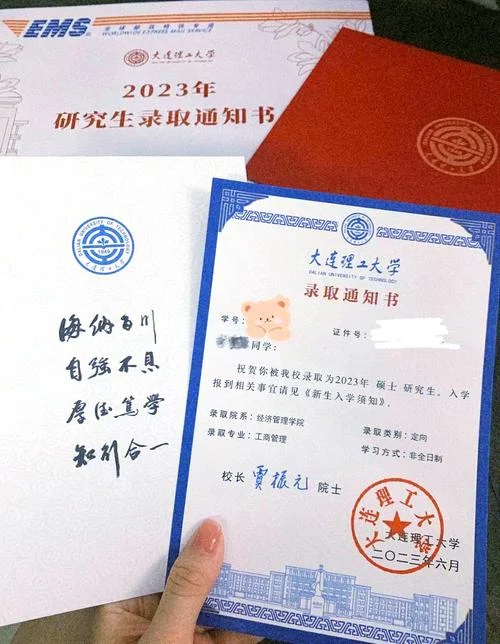 EMS
全球邮政特快专递
WORLDWIDE EXPRESS MAIL SERVICE
大连理工大学
2023年
研究生录取通知书
DALIAN UNIVERSITY OF TECHNOLOGY
1949
大连理工大学
海纳百川
自强不息
厚德笃学
知行合一
大连理工大学
DALIAN UNIVERSITY OF TECHNOLOGY
录取通知书
学号:
证件号:
同学:
祝贺你被我校录取为2023年 硕士 研究生。入学
报到相关事宜请见《新生入学须知》。
录取院系:经济管理学院
录取类别:定向
录取专业:工商管理
学习方式:非全日制
校长 贾振元 院士
大连理工大学
大连理工大学
二〇二三年六月